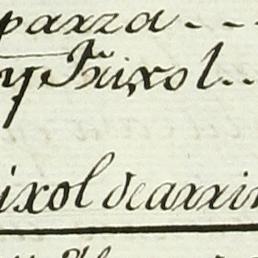 parza - - -
y Frixol - -
ixol de arrin